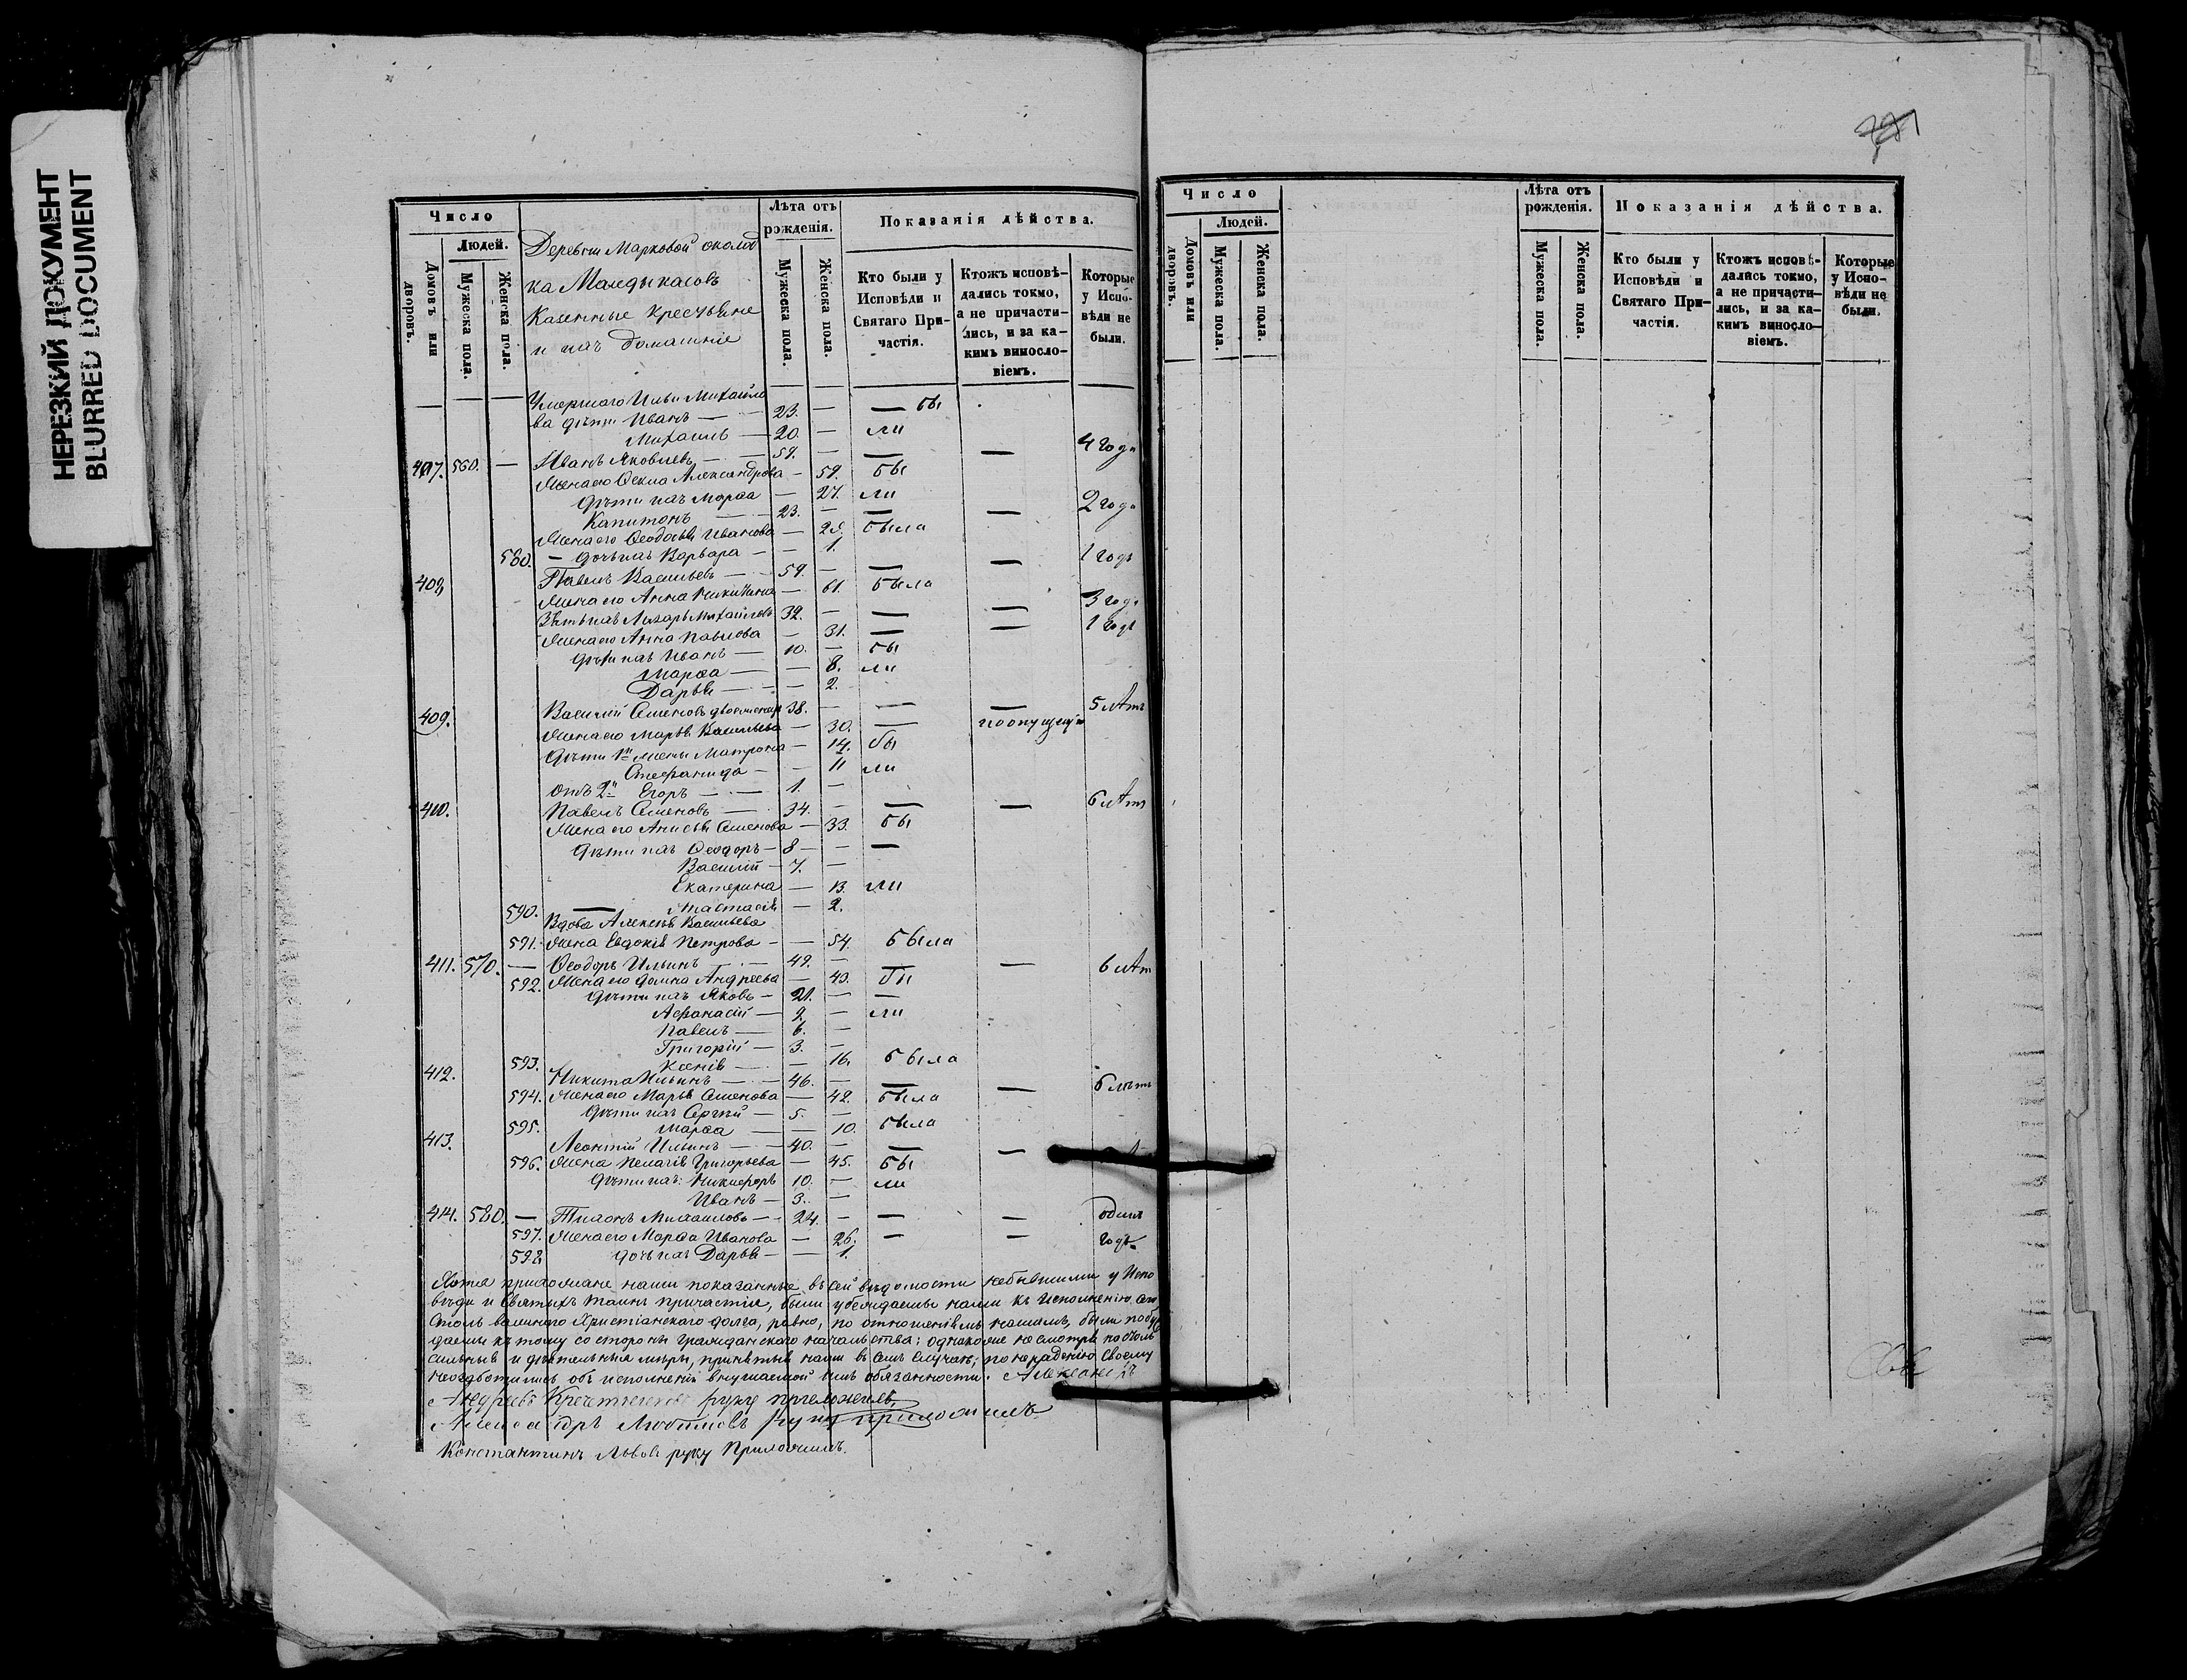 НЕРЕЗКИЙ ДОКУМЕНТ
BLURRED DOCUMENT
Число
Людей.
Домовъ или дворовъ.
Мужеска пола.
Женска пола.
Деревни Марковой околод
ка Мандыкасовъ
Казенные крестьяне
и ихъ домашніе
Лѣта отъ рожденія.
Мужеска пола.
Женска пола.
Показанія дѣйства.
Кто были у Исповѣди и Святаго Причастія.
Ктожъ исповѣдались токмо, а не причастились, и за какимъ винословіемъ.
Которые у Исповѣди не были.
Умершаго Ильи Михайло
ва дѣти Иванъ — 23. — бы
Михаилъ — 20. — ли
407. 560. — Иванъ Яковлевъ — 59. — — — 4 года
Жена его Ѳекла Александрова — 59. бы
дѣти ихъ Марѳа — 27. ли
Капитонъ — 23. — — — 2 года
Жена его Ѳеодосья Иванова — 28. была
580. — дочь ихъ Варвара — — 1.
408. Павелъ Васильевъ — 59. — — — 1 годъ
Жена его Анна Никитина — 61. была
Зять ихъ Лазарь Михайловъ 32. — — — 3 года
Жена его Анна Павлова — 31. — — 1 годъ
дѣти ихъ Иванъ — 10. — бы
Марѳа — — 8. ли
Дарья — — 2.
409. Василій Семеновъ двоежен 38. — — — 5 лѣтъ
Жена его Марья Васильева — 30. —
Дѣти 1й жены Матрона — 14. бы
Стефанида — — 11 ли
отъ 2й Егоръ — 1. —
410. Павелъ Семеновъ — 34. — — — 6 лѣтъ
Жена его Анисья Семенова — 33. бы
Дѣти ихъ Ѳеодоръ — 8 — — —
Василій — 7. —
Екатерина — 13. ли
590. — Анастасія — 2.
Вдова Алексѣя Васильева
591. жена Евдокія Петрова — — 54. была
411. 570. — Ѳеодоръ Ильинъ — 49. — — — 6 лѣт
592. Жена его Домна Андреева — 43. бы
Дѣти ихъ Яковъ — 21. — —
Аѳанасій — 9. — ли
Павелъ — 6. —
Григорій — 3. —
593. Ксенія — — 16. была
412. Никита Ильинъ — 46. — — — 6 лѣтъ
594. Жена его Марья Семенова — 42. была
Дѣти ихъ Сергѣй — 5. —
595. Марѳа — — 10. была
413. Леонтій Ильинъ — 40. — — —
596. Жена Пелагія Григорьева — 45. бы
Дѣти ихъ: Никифоръ 10. — ли
Иванъ — 3. —
414. 580. — Тихонъ Михайловъ — 24. — — — одинъ
597. Жена его Марѳа Иванова — 26. — — годъ
598. дочь ихъ Дарья — — 1.
Хотя прихожане наши показанные въ сей вѣдомости небывшими у Испо
вѣди и Святыхъ таинъ причастія, были убеждаемы нами къ исполненію сего
столь важнаго Христіанскаго долга, равно, по отношеніямъ нашимъ, были побуж
даемы къ тому со стороны гражданскаго начальства; однакоже несмотря на столь
сильныя и дѣятельныя мѣры, принятыя нами въ семъ случаѣ, по нерадѣнію своему
незаботились объ исполненіи внушаемой имъ обязанности. Александръ
Андреевъ руку приложилъ
Александръ Любимовъ руку приложилъ
Константинъ Львовъ руку приложилъ.
Число
Людей.
Домовъ или дворовъ.
Мужеска пола.
Женска пола.
Лѣта отъ рожденія.
Мужеска пола.
Женска пола.
Показанія дѣйства.
Кто были у Исповѣди и Святаго Причастія.
Ктожъ исповѣдались токмо, а не причастились, и за какимъ винословіемъ.
Которые у Исповѣди не были.